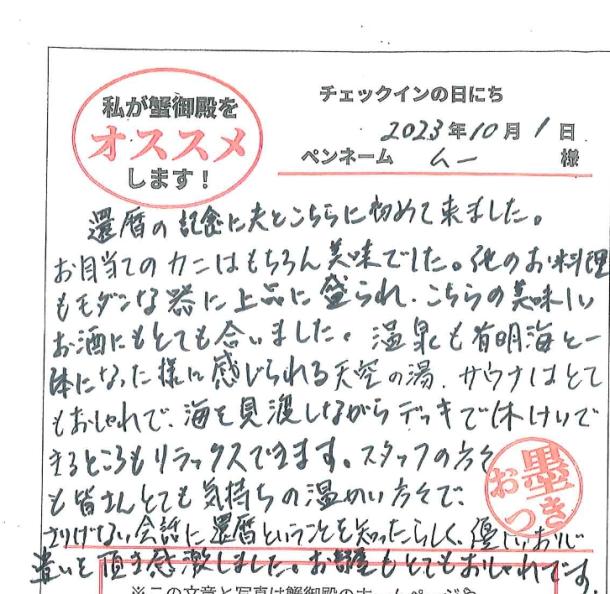 私が蟹御殿を
オススメ
します！
チェックインの日にち
2023年10月1日
ペンネーム ムー 様
還暦の記念に夫とこちらに初めて来ました。
お目当てのカニはもちろん美味でした。他のお料理
もモダンな器に上品に盛られ、こちらの美味しい
お酒にもとても合いました。温泉も有明海と一
体になった様に感じられる天空の湯、サウナはとて
もおしゃれで、海を見渡しながらデッキで休けいで
きるところもリラックスできます。スタッフの方々
も皆さんとても気持ちの温かい方々で、
さりげない会話に還暦ということを知ったらしく、優しいお心
遣いを頂き感激しました。お部屋もとてもおしゃれです。
お墨つき
※この文章と写真は蟹御殿のホームページや